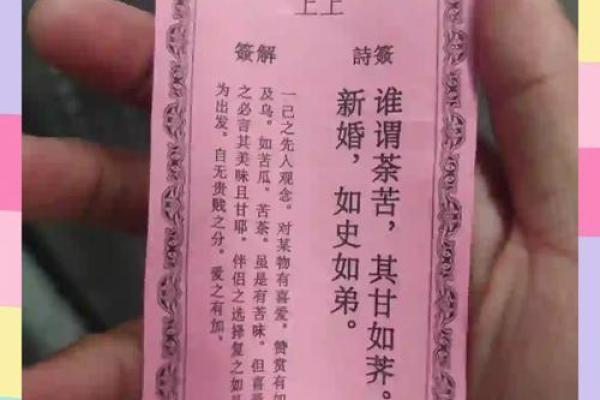 上上
簽詩
谁谓荼苦，其甘如荠。
新婚，如史如弟。
解簽
一己之先人观念。对某物有喜爱。赞赏有如
及乌。如苦瓜。苦茶。虽是有苦味。但喜
之必言其美味且甘耶。伴侣之选择复之如
为出发。自无贵贱之分。爱之有加。